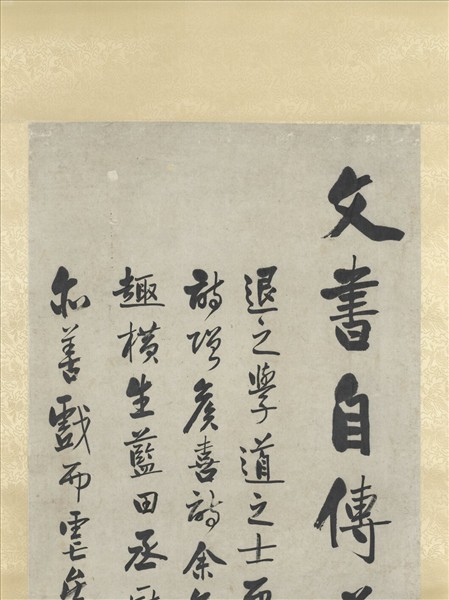 文書自傳
退之學道之士
詩贈侯喜詩余
趣橫生藍田丞
亦善戲而